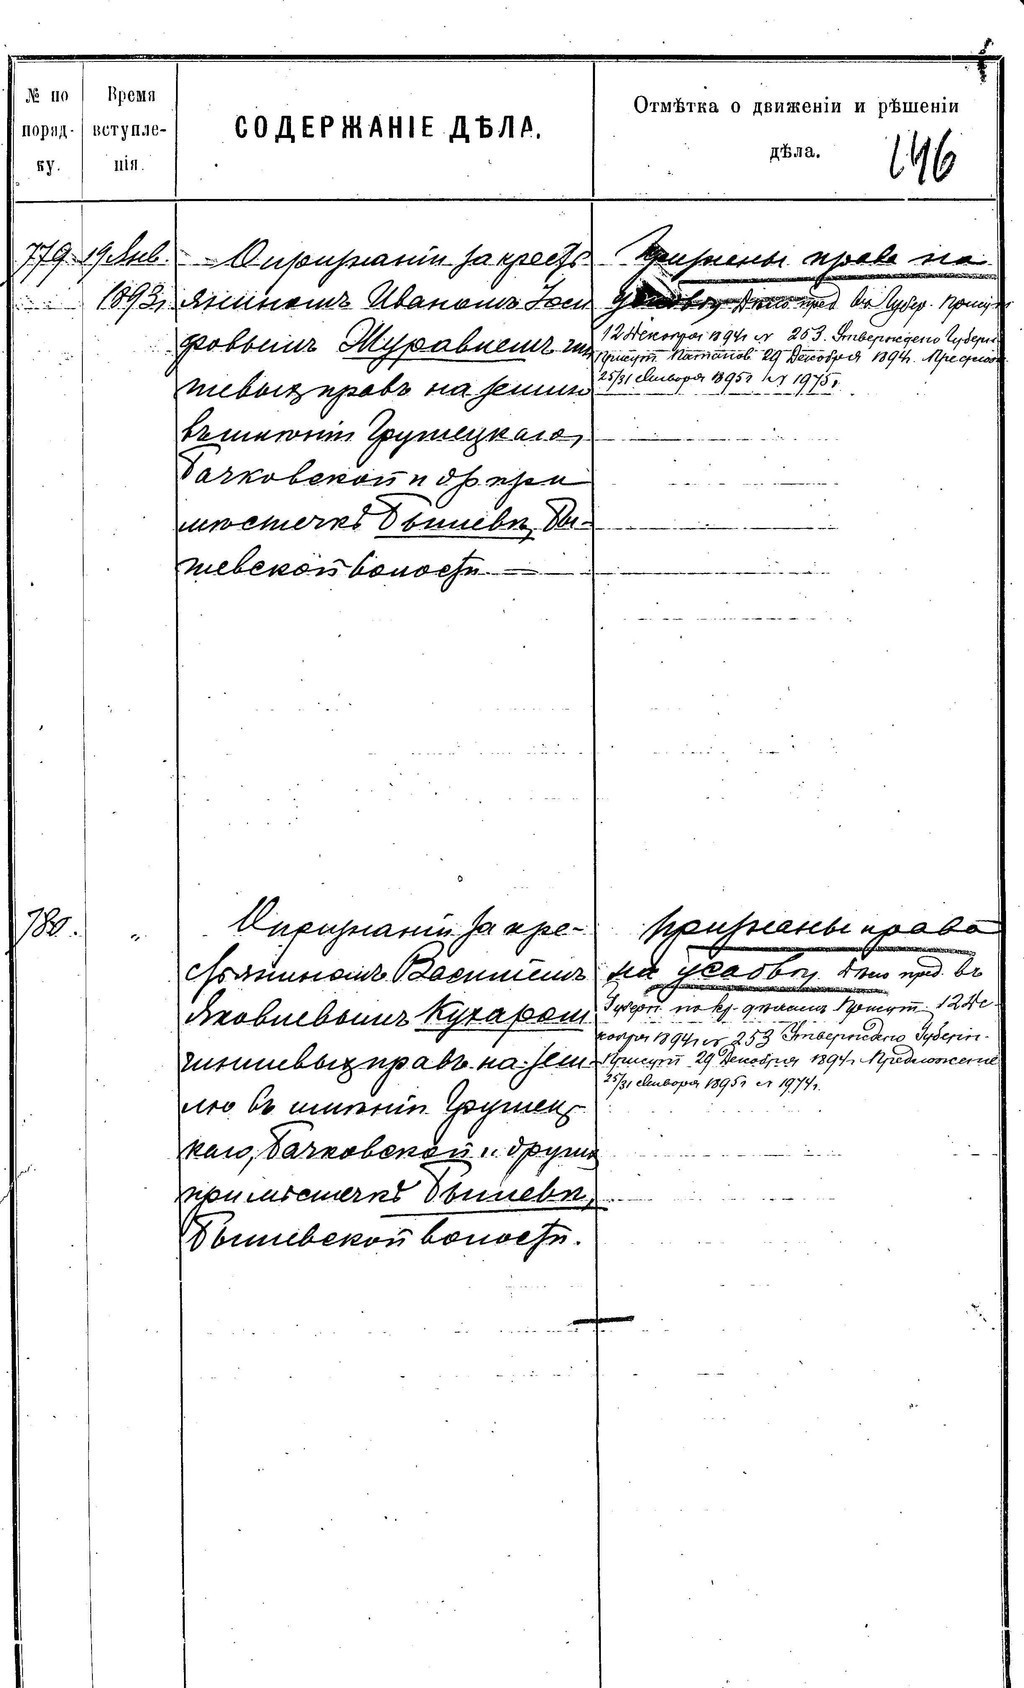 № по поряд- ку.
Время вступле- нія.
СОДЕРЖАНІЕ ДѢЛА.
Отмѣтка о движеніи и рѣшеніи дѣла.
146
779
19 Янв. 1893 г.
О признаніи за кресть
яниномъ Иваномъ Іоси
фовымъ Журавлемъ чин
шевыхъ правъ на землю
въ имѣніи Грушецкаго,
Бачковской и др при
мѣстечкѣ Бышевѣ, Бы-
шевской волости
Признаны права на
усадьбу Дѣло пред въ Губер. Присут
12 Декабря 1894 г № 253. Утверждено Губерн
Присут 29 Декабря 1894 г. Предлож
25/31 Января 1895 г № 1975.
780.
"
О признаніи за кре-
стьяниномъ Василіемъ
Яковлевымъ Кухаромъ
чиншевыхъ правъ на зем-
лю въ имѣніи Грушец-
каго, Бачковской и другихъ
при мѣстечкѣ Бышевѣ,
Бышевской волости.
Признаны права
на усадьбу Дѣло пред. въ
Губерн по кр. дѣламъ Присут. 12 Де-
кабря 1894 г № 253 Утверждено Губерн-
Присут 29 Декабря 1894 г Предложеніе
25/31 Января 1895 г № 1974.